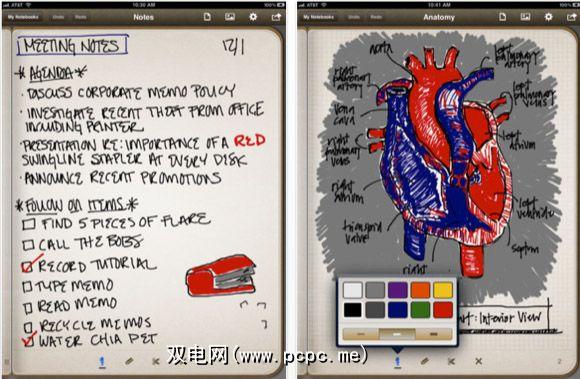 10:30 AM
My Notebooks
Undo
Redo
Notes
MEETING NOTES
12/1
*AGENDA*
· DISCUSS CORPORATE MEMO POLICY
· INVESTIGATE RECENT THEFT FROM OFFICE
INCLUDING PRINTER
· PRESENTATION RE: IMPORTANCE OF A RED
SWINGLINE STAPLER AT EVERY DISK
· ANNOUNCE RECENT PROMOTIONS
*FOLLOW ON ITEMS*
FIND 5 PIECES OF FLARE
CALL THE BOBS
RECORD TUTORIAL
TYPE MEMO
READ MEMO
RECYCLE MEMOS
WATER CHIA PET
10:41 AM
My Notebooks
Undo
Redo
Anatomy
aorta
left
pulmonary
artery
right
pulmonary
artery
left
pulmonary
veins
vena
cava
left
atrium
right
pulmonary
veins
right
atrium
left
ventricle
valve
septum
right
art: Interior View
2
双电网(www.pcpc.me)